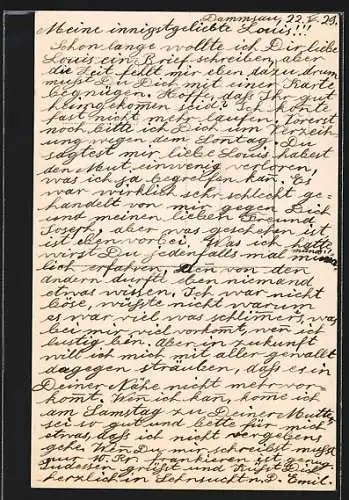 Dammsau, 22.V.23.
Meine innigstgeliebte Louis!!!
Schon lange wollte ich Dir, liebe
Louis ein Brief schreiben, aber
die Zeit fellt mir eben dazu, drum
mußt Du Dich mit einer Karte
begnügen. Hoffe, daß Ihr gut
heimgekomen seid? Ich konte
fast nicht mehr laufen. Vorerst
noch bitte ich Dich um Verzeih-
ung wegen dem Sontag. Du
sagtest mir liebe Louis, habest
den Mut einwenig verloren,
was ich ja begreifen kan. Es
war wirklich sehr schlecht ge-
handelt von mir gegen Dich
und meinen lieben Freund
Joseph, aber was geschehen ist
ist eben vorbei. Was ich hatte
wirst Du jedenfalls mal münd-
lich erfahren, den von den
andern durfte eben niemand
etwas wissen. Ich war nicht
böse, wüßte nicht warum,
es war viel was schlimers, was
bei mir viel vorkomt, wen ich
lustig bin. Aber in zukunft
will ich mich mit aller gewallt
dagegen sträuben, daß es in
Deiner Nähe nicht mehr vor-
komt. Wen ich kan, kome ich
am Samstag zu Deiner Mutter
sei so gut und bette für mich
etwas, daß ich nicht vergebens
gehe. Wen Du mir schreibst mußt
nur 10. Rp. frankieren ist genug.
Indessen grüßt und küßt Dich
herzlich in Sehnsucht n. D. Emil.